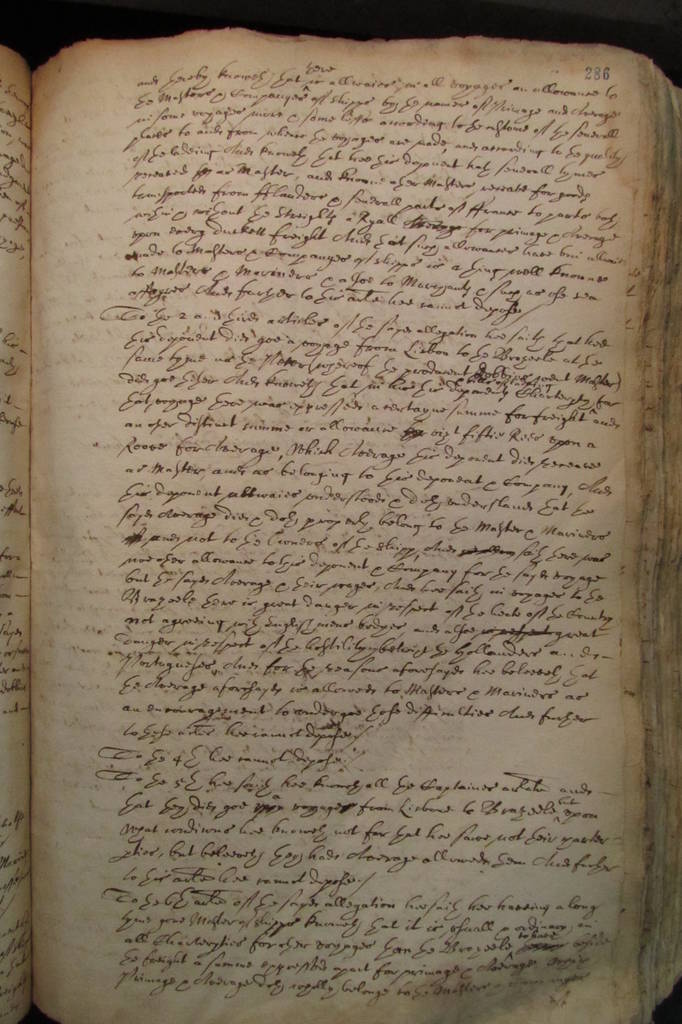 286
and hereby knoweth that there is allwaies in all voyages an allowance to
the Masters & Companyes of shipps by the name of Primage and Average
in some voyages more & some lesse according to the custome of the severall
places to and from where the voyages are made and according to the quality
of the lading And knoweth that hee this deponent hath severall tymes
receaved as Master, and knowne other Masters receave for goods
transported from Flanders & severall parts of France to parts both
within & without the Streights a Ryall for primage & Average
upon every duckett freight And that such allowances have bin allwaies
made to Masters & Companyes of shipps is a thing well knowne
to Masters & Mariners & alsoe to Marchants & such as use sea
affayres And further to this article hee cannot depose
To the 2 and third articles of the sayd allegation hee saith that hee
this deponent did goe a voyage from Lisbon to the Brazeele at the
same tyme as the (whereof the producent went Master)
did goe thither And knoweth that in this deponents Charterparty for
that voyage there was expressed a certayne summe for freight and
an other distinct summe or allowance vizt fiftie Rees upon a
Roove for Average, Which Average this deponent did receave
as Master and as belonging to this deponent & Company, And
this deponent allwaies understood & doth understand that the
sayd Average did & doth properly belong to the Master & Mariners
and not to the Owners of the shipp, And saith there was
noe other allowance to this deponent & Company for the sayd voyage
but the sayd Average & their wages, And hee saith in voyages to the
Brazeele there is great danger in respect of the heate of the Country
not agreeing with English mens bodyes and alsoe great
danger in respect of the hostility betwixt the Hollanders and
Portugueses, And for the reasons aforesayd hee beleeveth that
the Average aforesayd is allowed to Masters & Mariners as
an encouragement to undergoe those difficulties And further
to these articles hee cannot depose
To the 4th hee cannot depose
To the 5th hee saith hee knoweth all the Captaines articulate and
that they did goe voyages from Lisbone to Brazeele but upon
what conditions hee knoweth not for that hee saw not their charter
parties, but beleeveth they had Average allowed them And further
to this article hee cannot depose
To the 6th article of the sayd allegation hee saith hee having a long
tyme gone Master of shipps knoweth that it is usuall & ordinary in
all Charterparties for other voyages then the Brazeele to have beside
the freight a summe expressed apart for primage & Average which
Primage & Average doth usually belong to the Master &